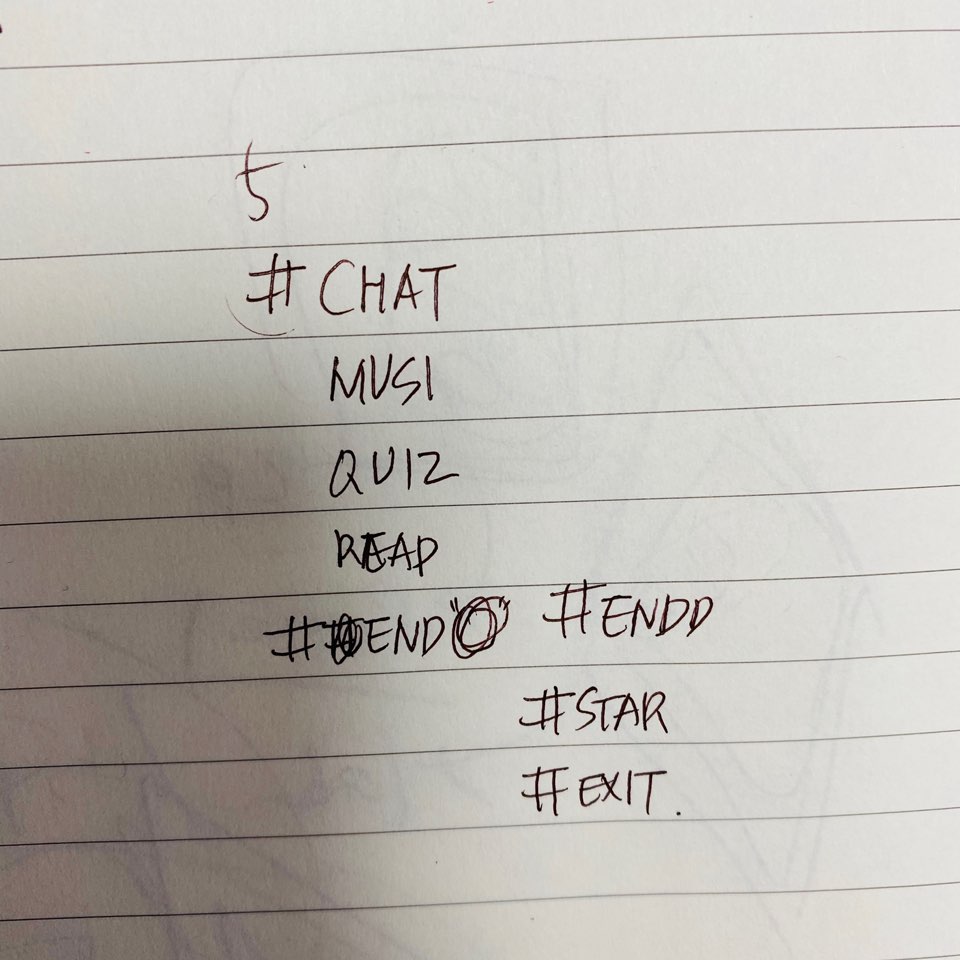 5
#CHAT
MUSI
QUIZ
READ
#END #ENDD
#STAR
#EXIT.